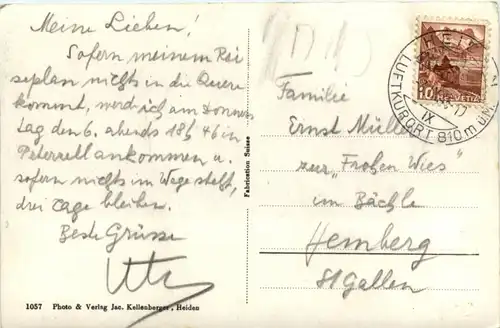 Meine Lieben!
Sofern meinem Rei
seplan nichts in die Quere
kommt, werd ich am Donners
tag den 6. abends 18h 46 in
ankommen u.
sofern nichts im Wege steht,
drei Tage bleiben.
Beste Grüsse
Fabrication Suisse
1057 Photo & Verlag Jac. Kellenberger, Heiden
10 HELVETIA
IX
LUFTKURORT 810 m
Familie
Ernst Müller
zur "Frohen Wies"
im Bächle
Hemberg
St Gallen